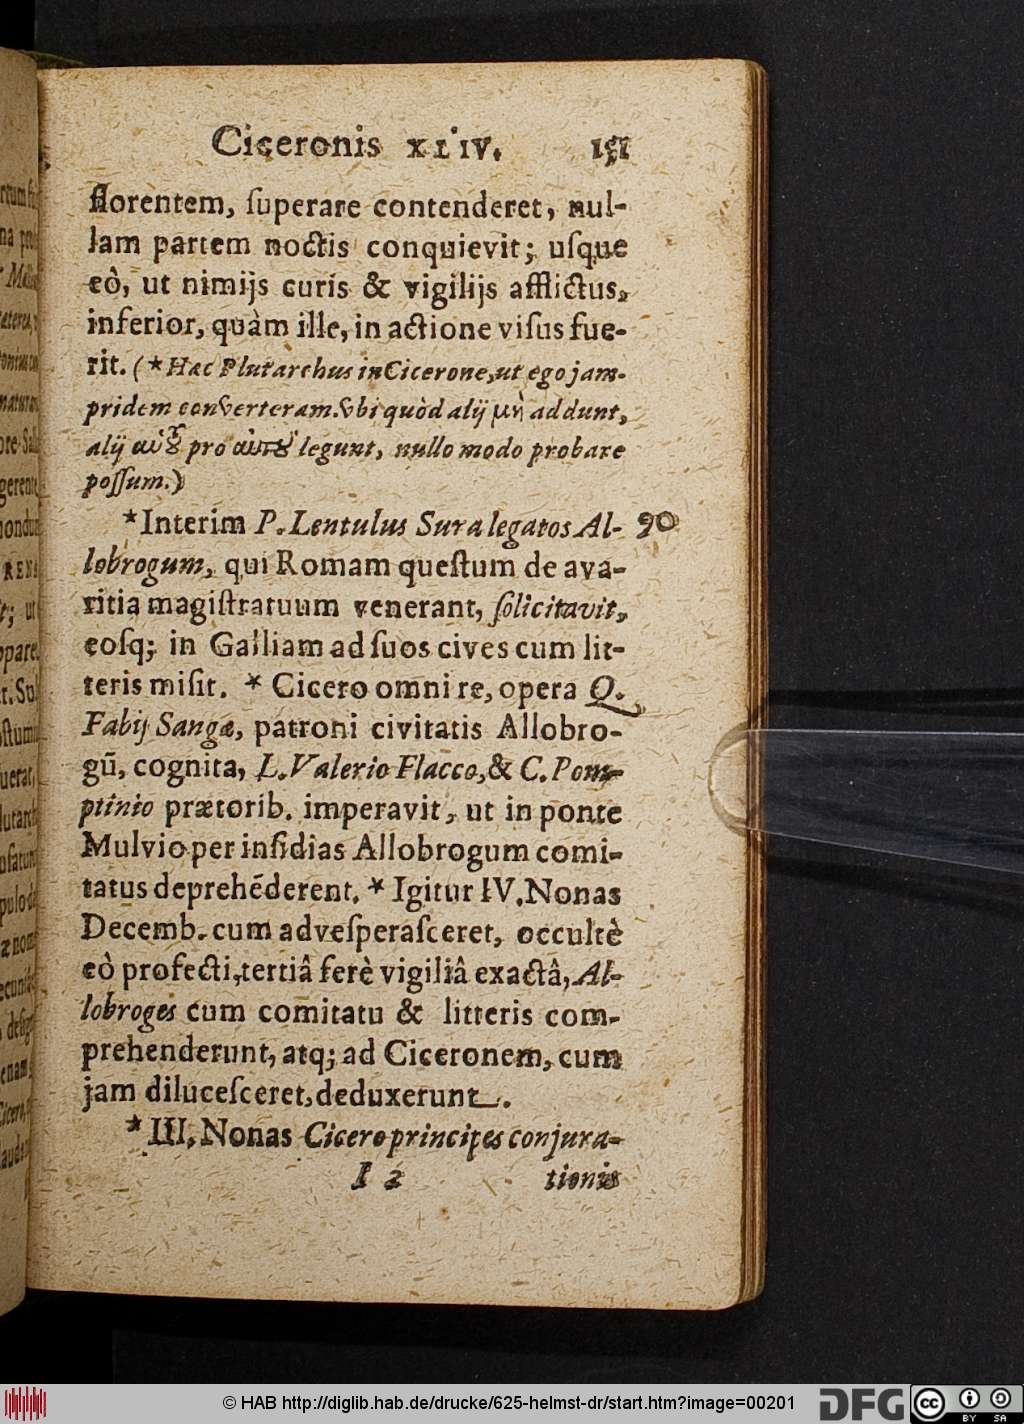 Ciceronis XLIV. 151
florentem, ſuperare contenderet, nul-
lam partem noctis conquievit; uſque
eò, ut nimijs curis & vigilijs afflictus,
inferior, quàm ille, in actione viſus fue-
rit. (*Hæc Plutarchus in Cicerone, ut ego jam-
pridem converteram. Vbi quòd alij μὴ addunt,
alij pro legunt, nullo modo probare
poſſum.)
*Interim P. Lentulus Sura legatos Al- 90
lobrogum, qui Romam queſtum de ava-
ritia magiſtratuum venerant, ſolicitavit,
eoſq; in Galliam ad ſuos cives cum lit-
teris miſit. * Cicero omni re, opera Q.
Fabij Sangæ, patroni civitatis Allobro-
gū, cognita, L. Valerio Flacco, & C. Pom-
ptinio prætorib. imperavit, ut in ponte
Mulvio per inſidias Allobrogum comi-
tatus deprehēderent. * Igitur IV. Nonas
Decemb. cum advesperaſceret, occultè
eò profecti, tertiâ ferè vigiliâ exactâ, Al-
lobroges cum comitatu & litteris com-
prehenderunt, atq; ad Ciceronem, cum
jam diluceſceret, deduxerunt.
* III. Nonas Cicero principes conjura-
I 2 tionis
© HAB http://diglib.hab.de/drucke/625-helmst-dr/start.htm?image=00201
DFG
cc BY SA